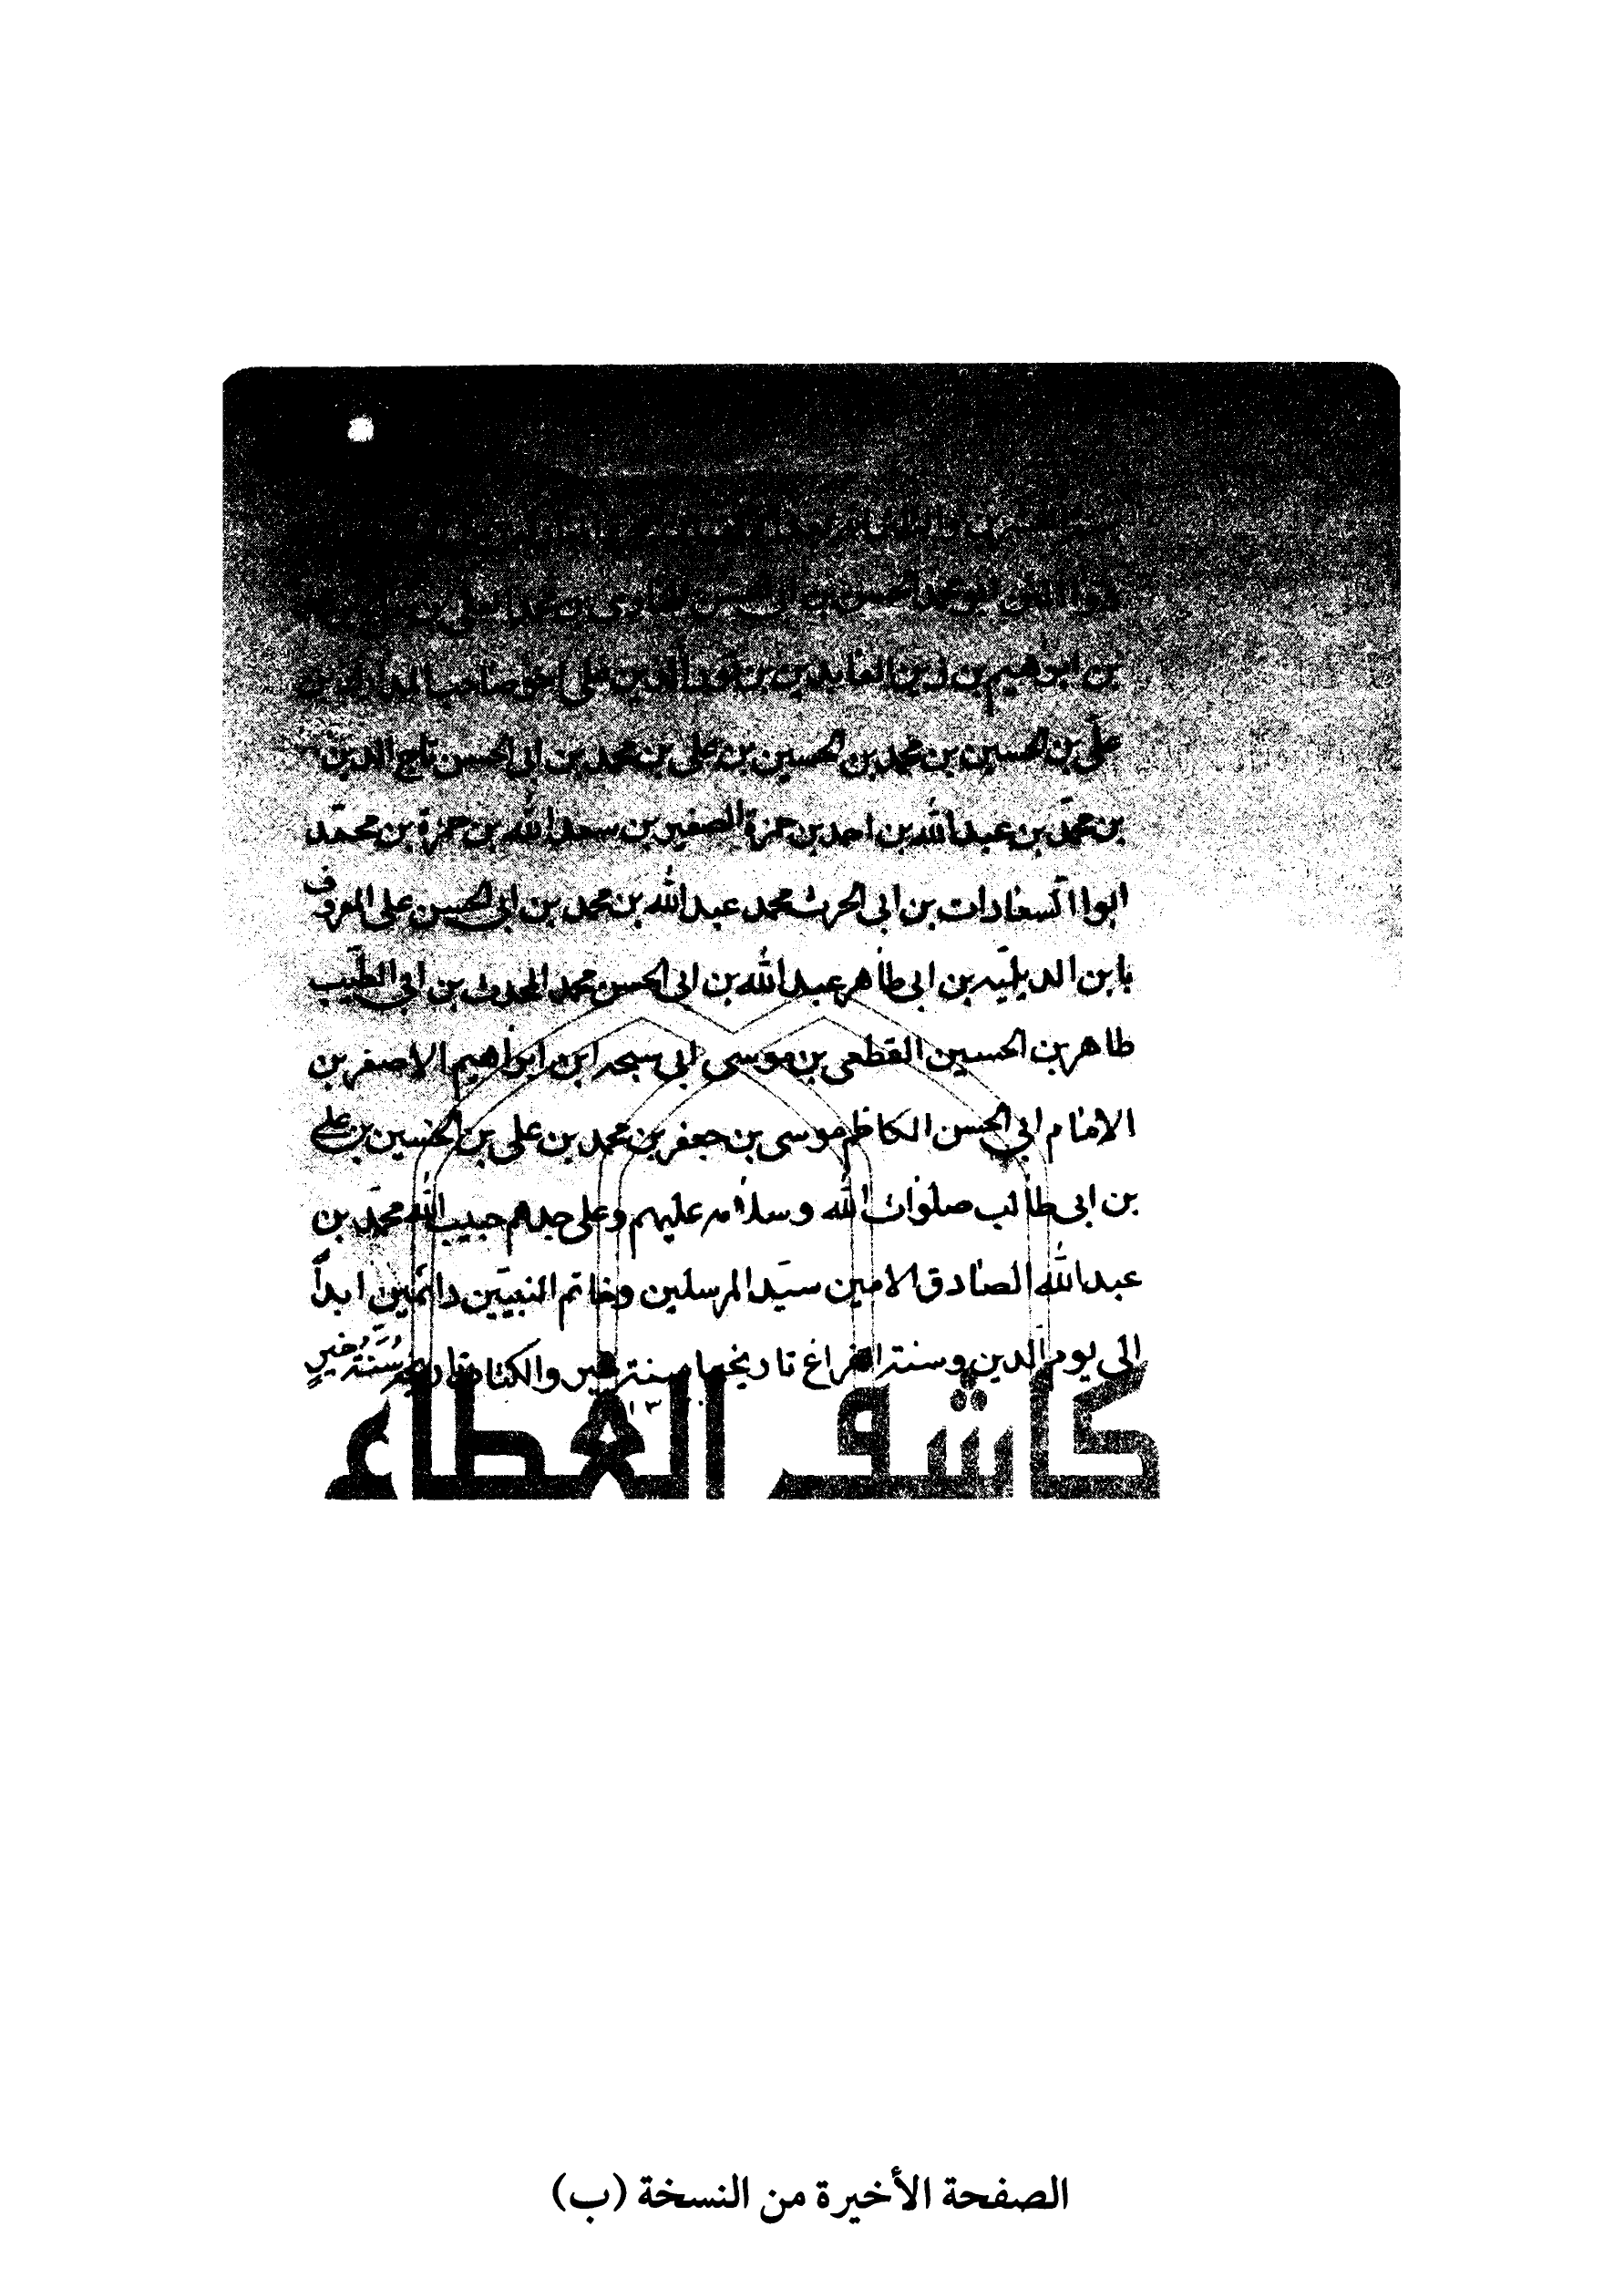 بن ابراهيم بن زين العابدين بن نور الدين علي اخو صاحب المدارك بن
علي بن الحسين بن محمد بن الحسين بن علي بن محمد بن ابي الحسن تاج الدين
بن محمد بن عبد الله بن احمد بن حمزة الصغير بن سعد الله بن حمزة بن محمد
ابوا السعادات بن ابي الحرث محمد عبد الله بن محمد بن ابي الحسين علي المعروف
بابن الديلميه بن ابي طاهر عبد الله بن ابي الحسن محمد المحدث بن ابي الطيب
طاهر بن الحسين القطعي بن موسى ابي سبحه ابن ابراهيم الاصغر بن
الامام ابي الحسن الكاظم موسى بن جعفر بن محمد بن علي بن الحسين بن علي
بن ابي طالب صلوات الله وسلامه عليهم وعلى جدهم حبيب الله محمد بن
عبد الله الصادق الامين سيد المرسلين وخاتم النبيين دائمين ابداً
الى يوم الدين وسنة الفراغ تاريخها سنة خير والكتاب تاريخه سنة خير
كاشف الغطاء
الصفحة الأخيرة من النسخة (ب)